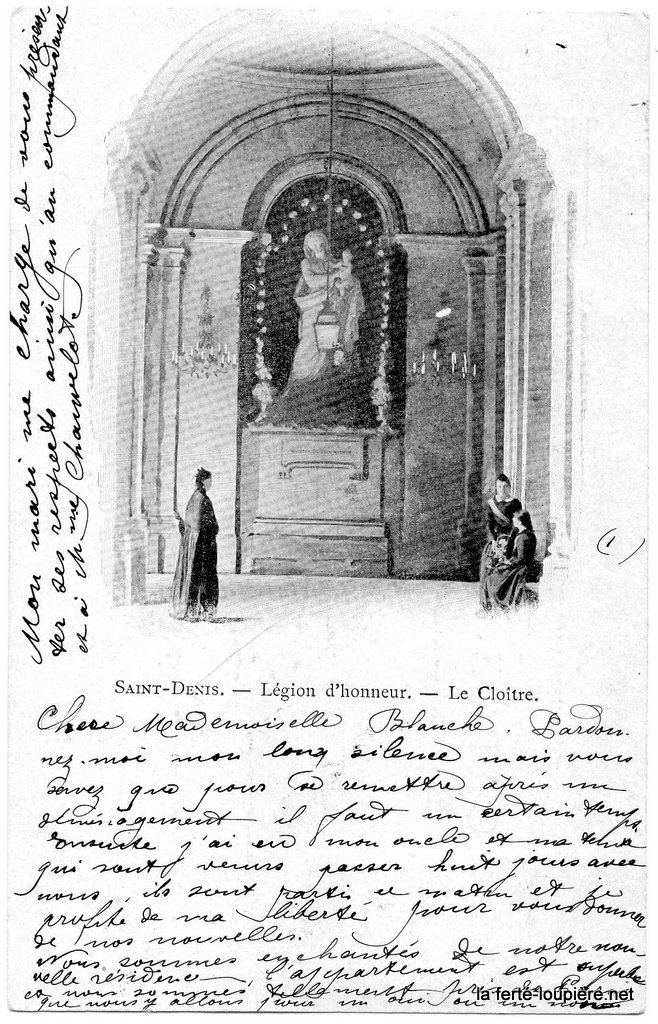 Mon mari me charge de vous présen-
ter ses respects ainsi qu'au commandant
et à Mme Chauvelot.
(1)
SAINT-DENIS. — Légion d'honneur. — Le Cloître.
Chere Mademoiselle Blanche, Pardon-
nez-moi mon long silence mais vous
savez que pour se remettre après un
déménagement il faut un certain temps,
Ensuite j'ai eu mon oncle et ma tante
qui sont venus passer huit jours avec
nous, ils sont partis ce matin et je
profite de ma liberté pour vous donner
de nos nouvelles.
Nous sommes enchantés de notre nou-
velle résidence, l'appartement est superbe
et nous sommes tellement près de Paris
que nous y allons pour un oui ou un non
la ferte-loupière.net